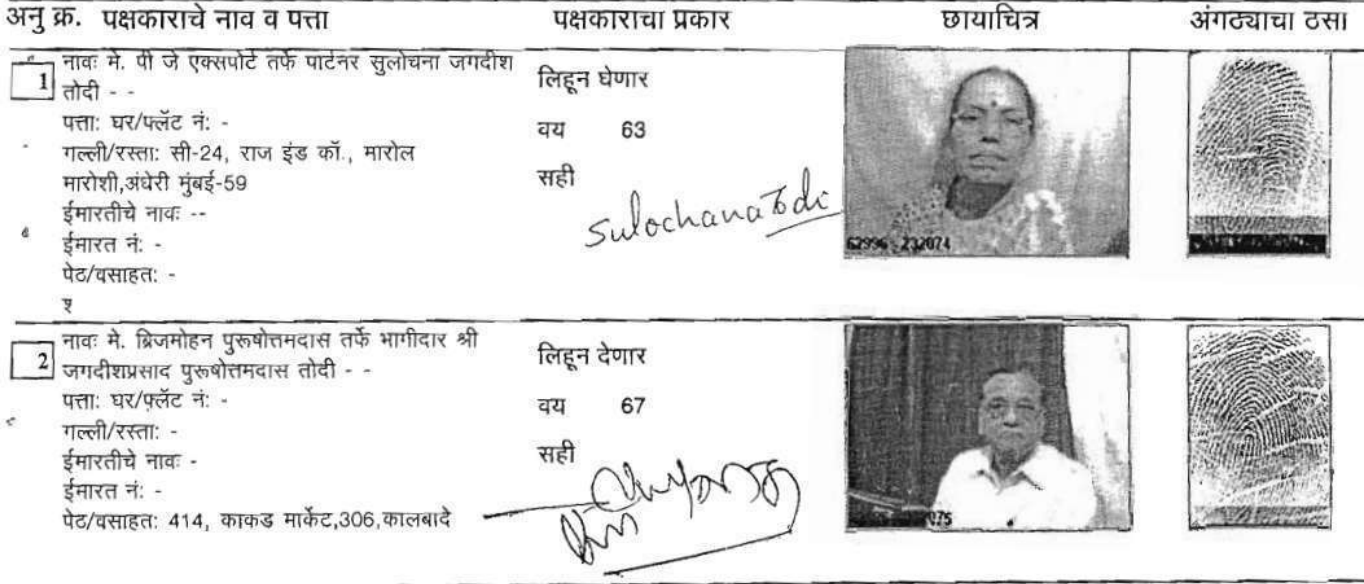 अनु क्र. पक्षकाराचे नाव व पत्ता पक्षकाराचा प्रकार छायाचित्र अंगठ्याचा ठसा
1 नावः मे. पी जे एक्सपोर्ट तर्फे पार्टनर सुलोचना जगदीश
तोदी - -
पत्ता: घर/फ्लॅट नं: -
गल्ली/रस्ता: सी-24, राज इंड कॉ., मारोल
मारोशी,अंधेरी मुंबई-59
ईमारतीचे नावः --
ईमारत नं: -
पेठ/वसाहत: -
लिहून घेणार
वय 63
सही
Sulochana Todi
62996 - 232074
2 नावः मे. ब्रिजमोहन पुरूषोत्तमदास तर्फे भागीदार श्री
जगदीशप्रसाद पुरूषोत्तमदास तोदी - -
पत्ता: घर/फ़्लॅट नं: -
गल्ली/रस्ता: -
ईमारतीचे नावः -
ईमारत नं: -
पेठ/वसाहत: 414, काकड मार्केट,306,कालबादे
लिहून देणार
वय 67
सही